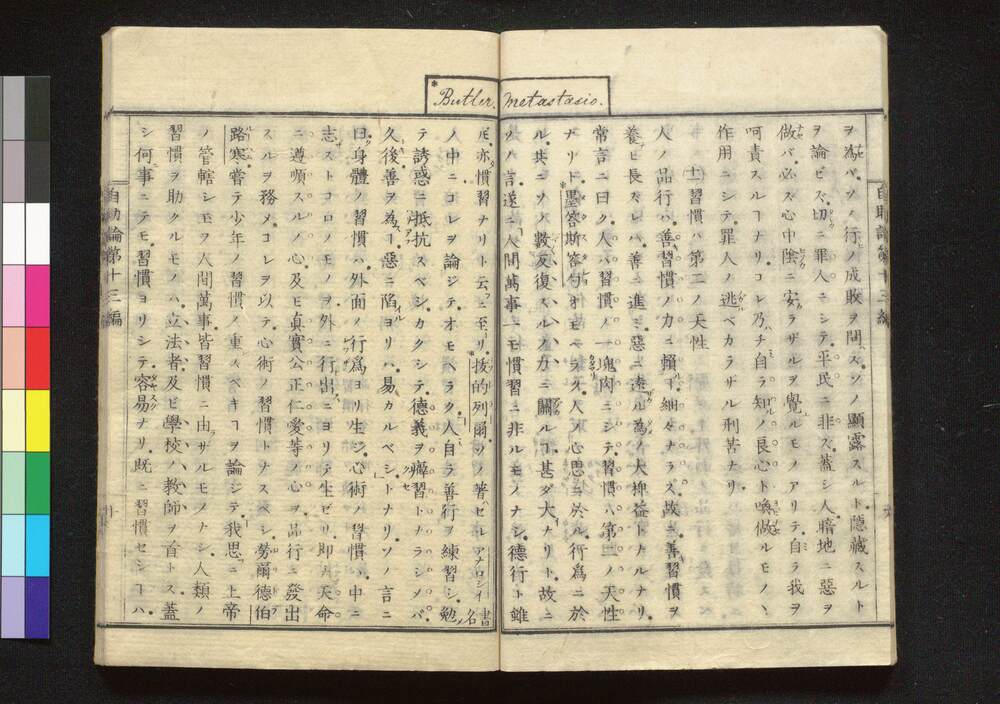 *Butler. Metastasio.
ヲ為ベソノ行ノ成敗ヲ問ズソノ顯露スルト隠藏スルト
ヲ論ビズ切ニ罪人ニシテ平民ニ非ズ蓋シ人暗地ニ惡ヲ
做バ必ズ心中陰ニ安ラザルヲ覺ルモノアリテ自ラ我ヲ
呵責スルヿナリコレ乃ハチ自ラ知ノ良心ト喚做ルモノヽ
作用ニシテ罪人ノ逃ベカラザル刑苦ナリ
(十一)習慣ハ第二ノ天性
人ノ品行ハ善習慣ノ力ニ頼ヿ細々ナラズ故ニ善習慣ヲ
養ヒ長ズレバ善ニ進ミ惡ニ遠ル為ノ大裨益トナルナリ
常言ニ曰ク人ハ習慣ノ一塊肉ニシテ習慣ハ第二ノ天性
ナリト*墨答斯答勻オモヘラク人ハ心思ニ於ル行為ニ於
ル共ニソノ數反復スルノ力ニ關ルヿ甚ダ大ナリト故ニ
ソノ言遂ニ人間萬事一モ慣習ニ非ルモノナシ德行ト雖
ドモ亦慣習ナリト云フニ至リ*拔的列爾ソノ著ハセルアナロジイ書名
ノ中ニコレヲ論ジテオモヘラク人自ラ善行ヲ練習シ勉
テ誘惑ニ抵抗スベシカクシテ德義ヲ慣習トナラシメバ
久後善ヲ為ヿ惡ニ陷ルヨリハ易カルベシトナリソノ言ニ
曰身體ノ習慣ハ外面ノ行為ヨリ生ジ心術ノ習慣ハ中ニ
志ストコロノモノヲ外ニ行出ニヨリテ生ゼリ即チ天命
ニ遵順スルノ心及ヒ真實公正仁愛等ノ心ヲ品行ニ發出
スルヲ務メコレヲ以テ心術ノ習慣トナスベシ勞爾德伯
路寒嘗テ少年ノ習慣ノ重スベキヿヲ論ジテ我思ニ上帝
ノ管轄シモフ人間萬事皆習慣ニ由ザルモノナシ人類ノ
習慣ヲ助クルモノハ立法者及ビ學校ノ教師ヲ首トス蓋
シ何事ニテモ習慣ヨリシテ容易ナリ既ニ習慣セシヿハ
自助論第十三編
十